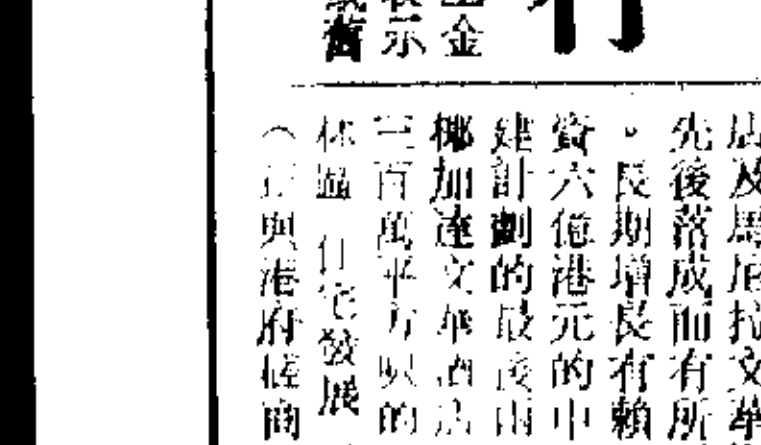 店及馬尼拉文華
先後落成而有所
。長期增長有賴
資六億港元的中
建計劃的最後兩
椰加達文華酒店
三百萬平方呎的
林區 住宅發展
（正與港府磋商
金
示
舊